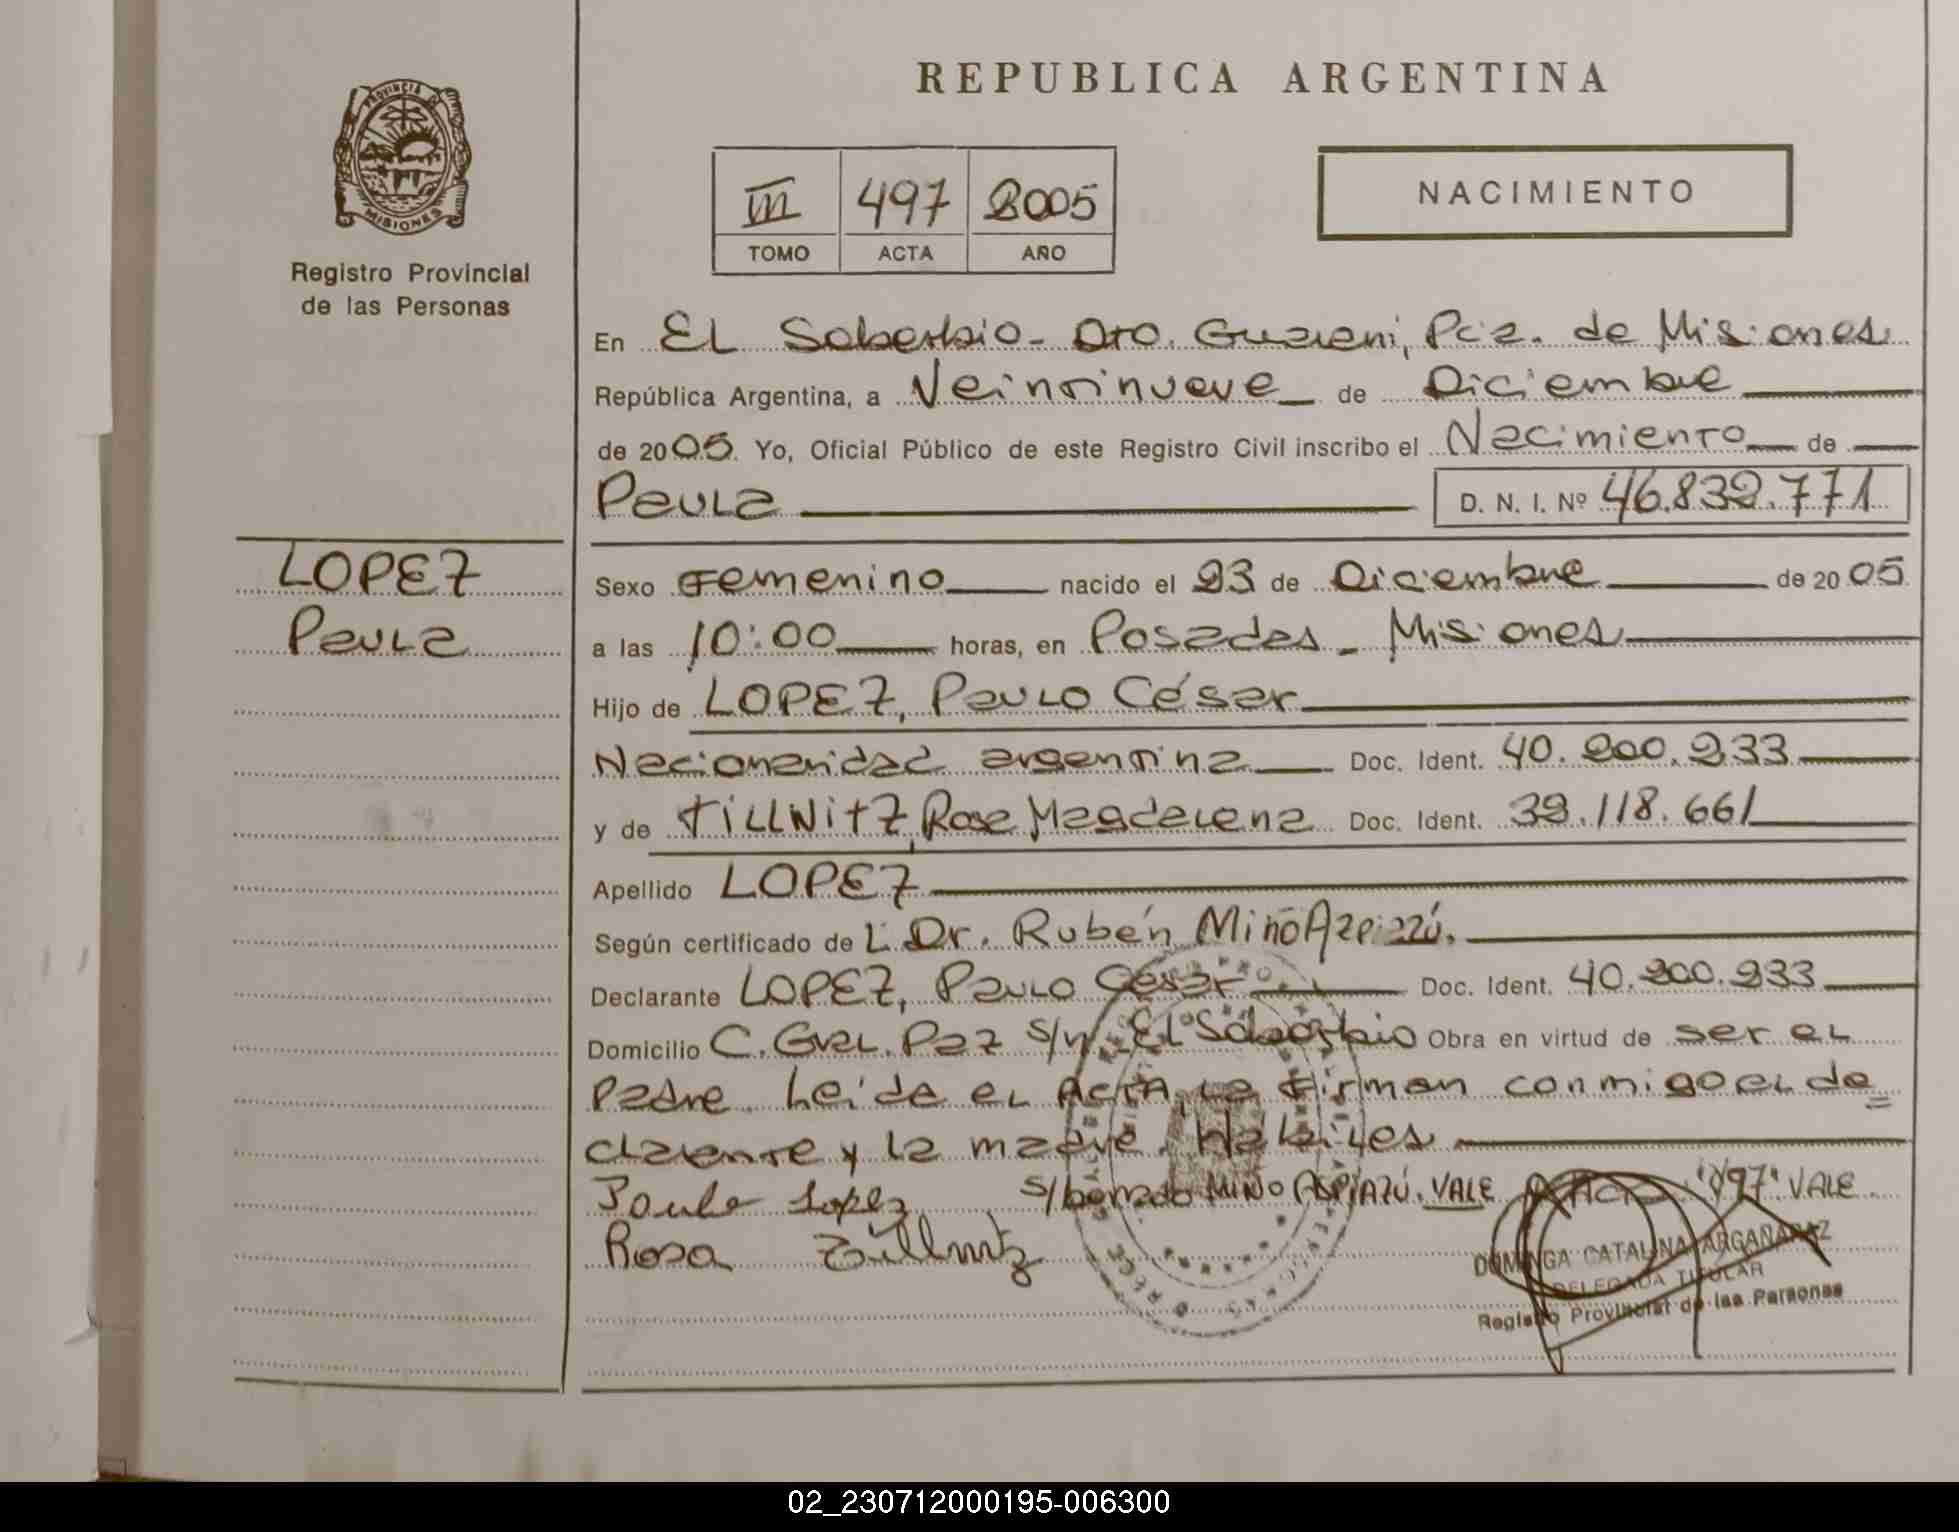 REPUBLICA ARGENTINA
PROVINCIA DE
MISIONES
Registro Provincial
de las Personas
III 497 2005
TOMO ACTA AÑO
NACIMIENTO
En El Soberbio - Dto. Guaraní, Pcia. de Misiones
República Argentina, a Veintinueve de Diciembre
de 2005 Yo, Oficial Público de este Registro Civil inscribo el Nacimiento de
Paula D. N. I. Nº 46.832.771
LOPEZ
Paula
Sexo Femenino nacido el 23 de Diciembre de 2005
a las 10:00 horas, en Posadas - Misiones
Hijo de LOPEZ, Paulo César
Nacionalidad argentina Doc. Ident. 40.200.233
y de TILLWITZ, Rosa Magdalena Doc. Ident. 39.118.661
Apellido LOPEZ
Según certificado de L. Dr. Rubén Miño Azpiazú.
Declarante LOPEZ, Paulo César Doc. Ident. 40.200.233
Domicilio C. Gral. Paz s/n El Soberbio Obra en virtud de ser el
padre. Leída el ACTA, la firman conmigo el de=
clarante y la madre. Hábiles
Paulo Lopez s/borrado MIÑO ASPIAZÚ. VALE ACTA "497" VALE
Rosa Tillwitz
DOMINGA CATALINA ARGAÑARAZ
DELEGADA TITULAR
Registro Provincial de las Personas
02_230712000195-006300